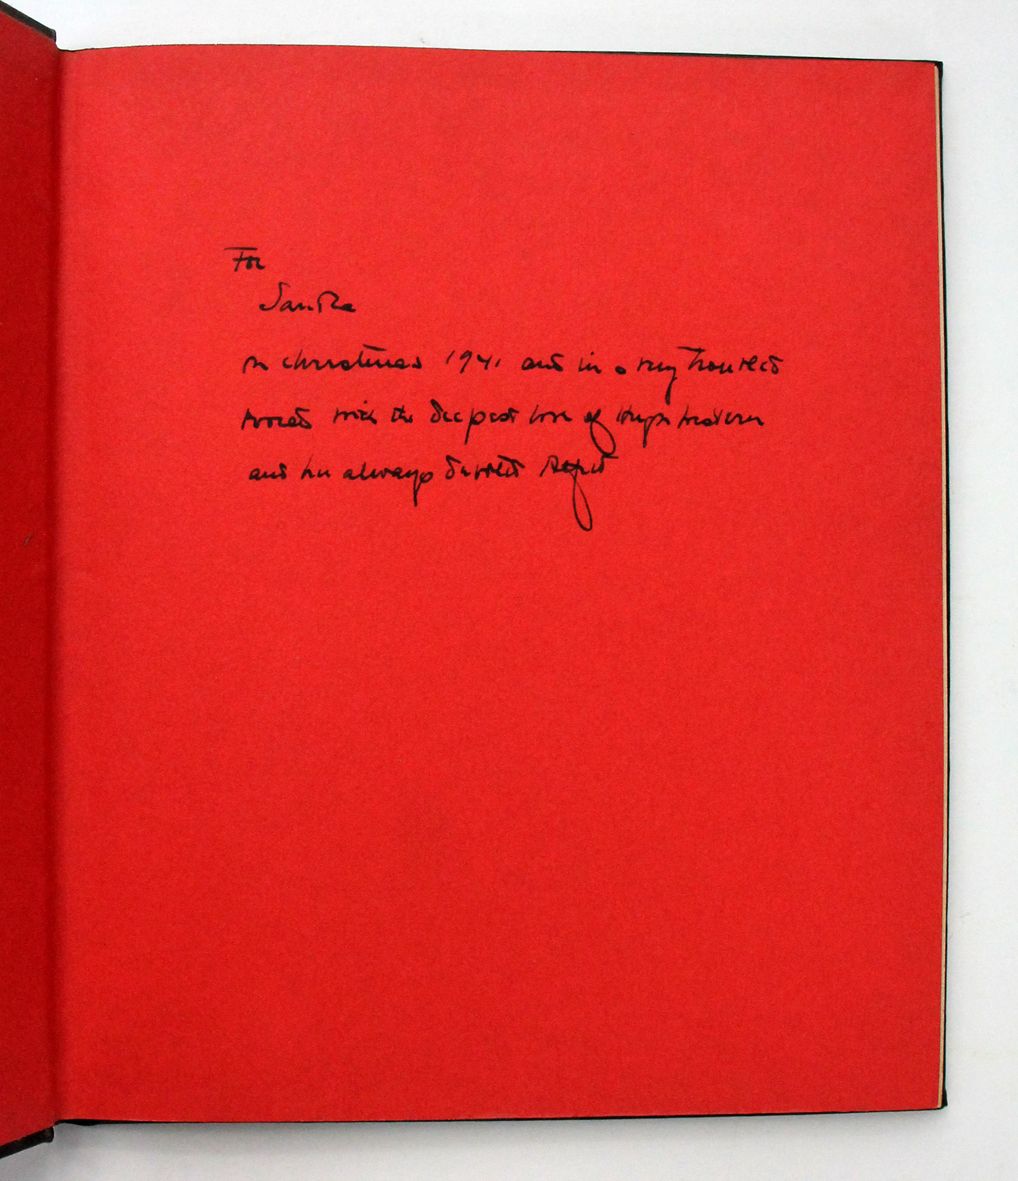 For
Sandra
on christmas 1941 and in a very troubled
world with the deepest love of
and her always devoted